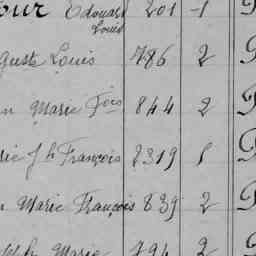 our Edouard 201 1
Louis
gust Louis 786 2
n Marie Fois 844 2
rie J h François 2319 1
n Marie François 839 2
Marie 794 2